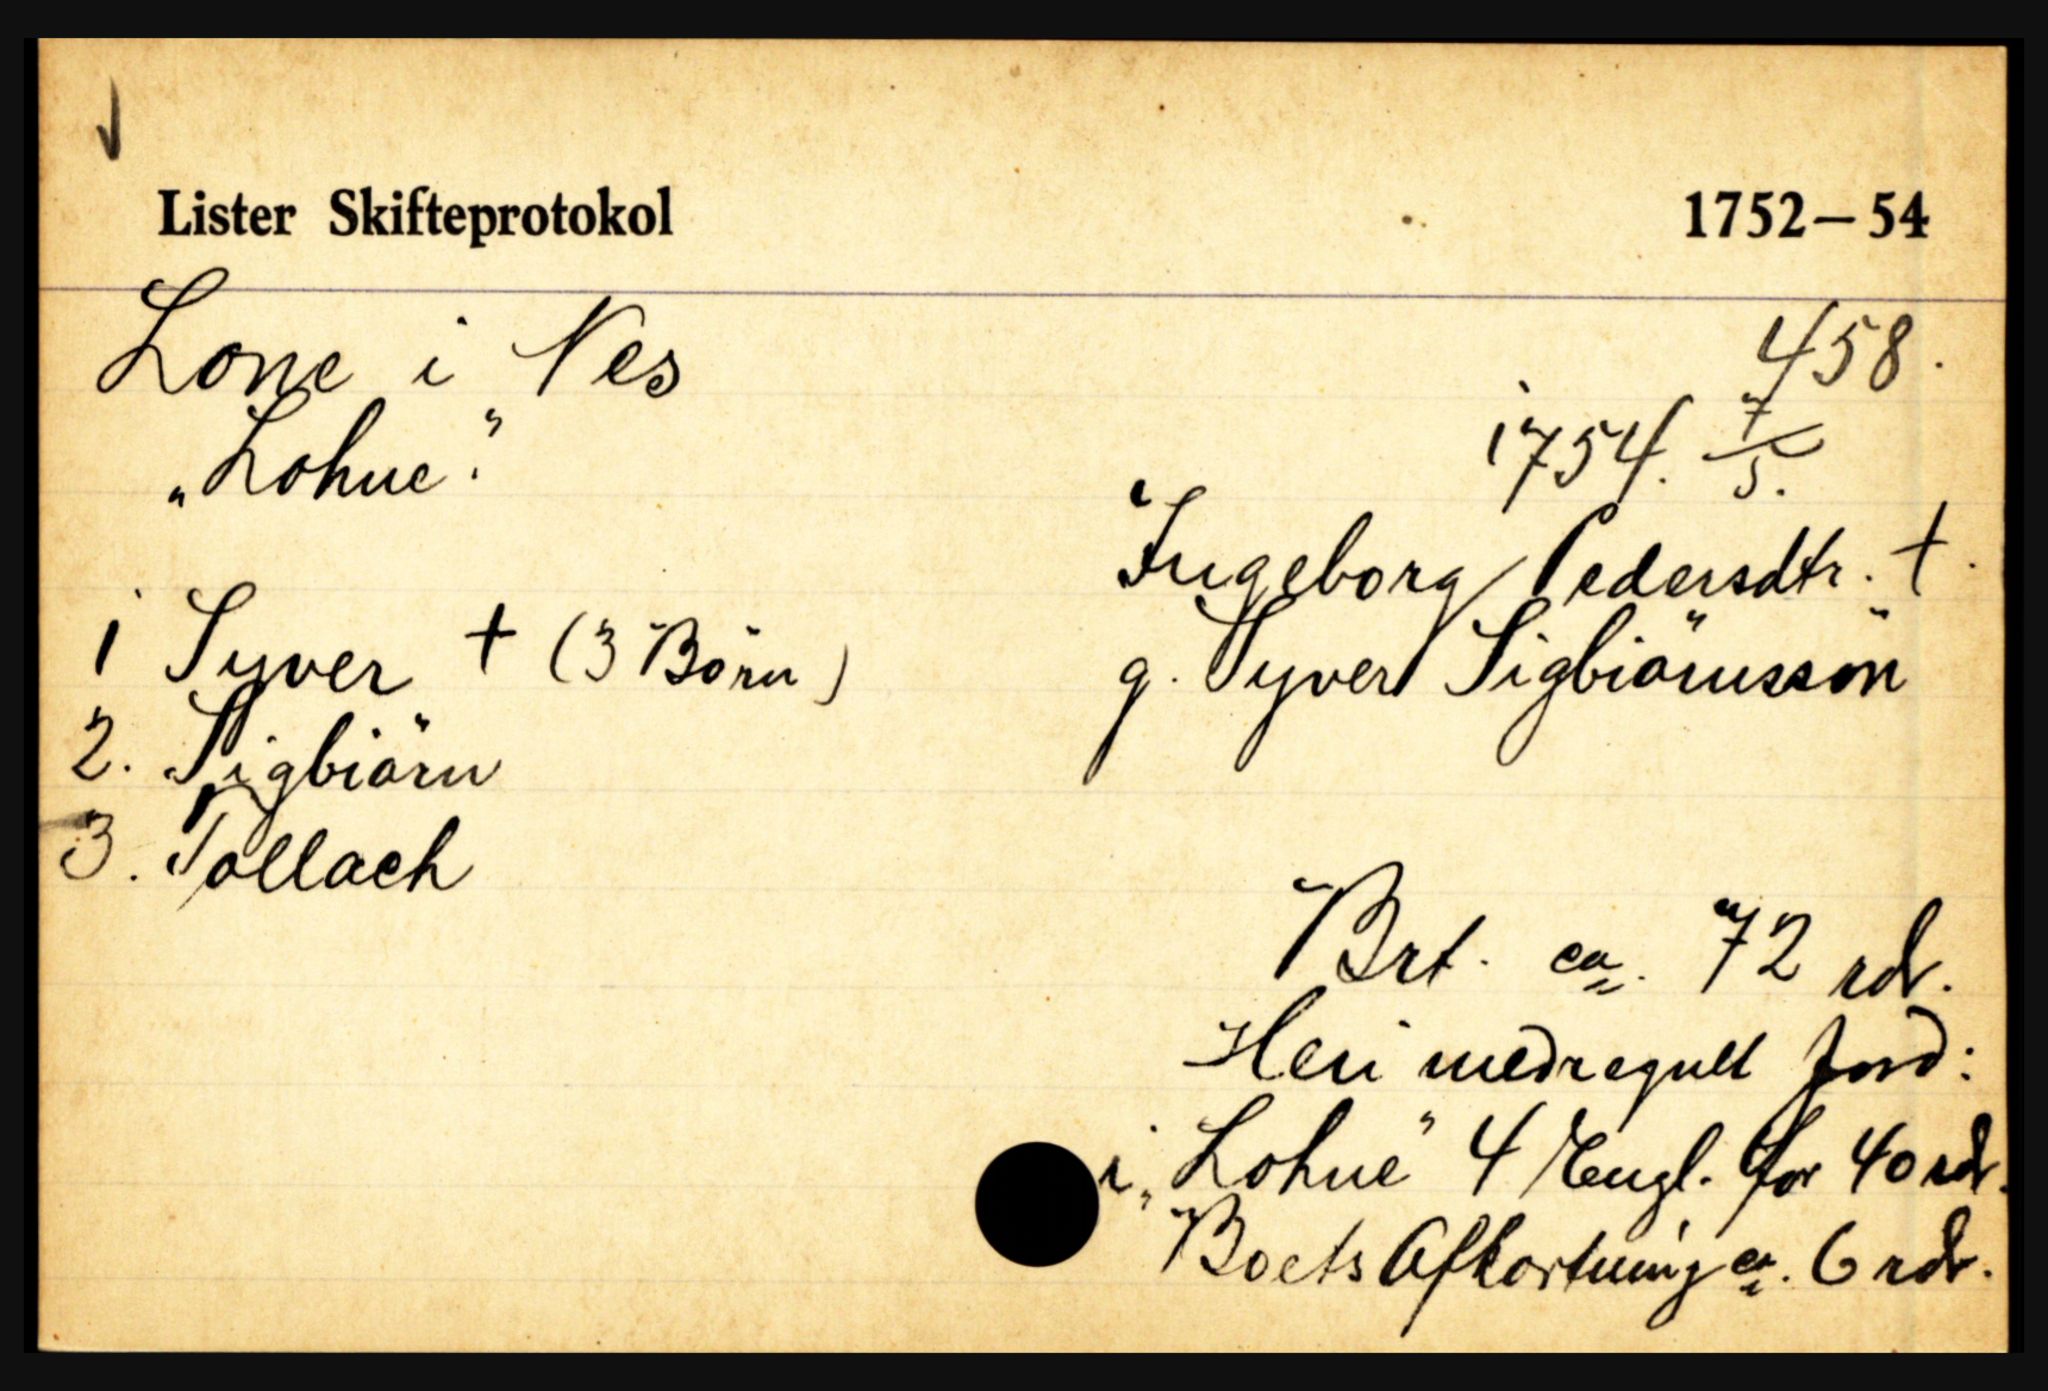 Lister Skifteprotokol 1752–54
Lone i Nes
458.
„Lohne".
1754. 7/5.
Ingeborg Pedersdtr. †.
g. Syver Sigbiörnssön
1 Syver † (3 Börn)
2. Sigbiörn
3. Tollach
Brt. ca. 72 rdr.
Heri medregnet Jord:
i „Lohne" 4 Engl. for 40 rdr.
Boets Afkortning ca. 6 rdr.